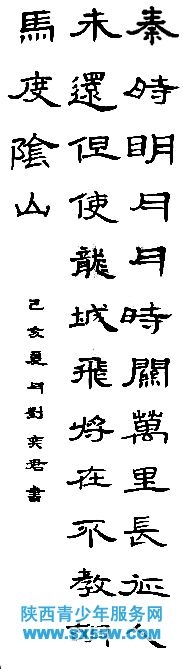 秦時明月月時關萬里長征人
未還但使龍城飛將在不教胡
馬度陰山
己亥夏月劉奕君書
陕西青少年服务网
www.sx55w.com